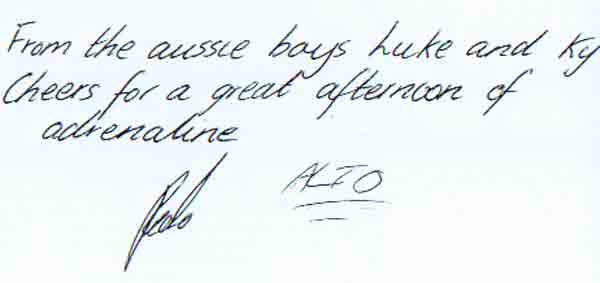 From the aussie boys Luke and Ky
Cheers for a great afternoon of
adrenaline